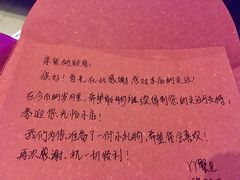 亲爱的顾客:
您好!首先在此感谢您对本店的关注!
在今后的岁月里,希望能够继续得到您的关注与支持,
欢迎您光临本店!
我们为你准备了一份小礼物,希望您会喜欢!
再次感谢,祝一切顺利!